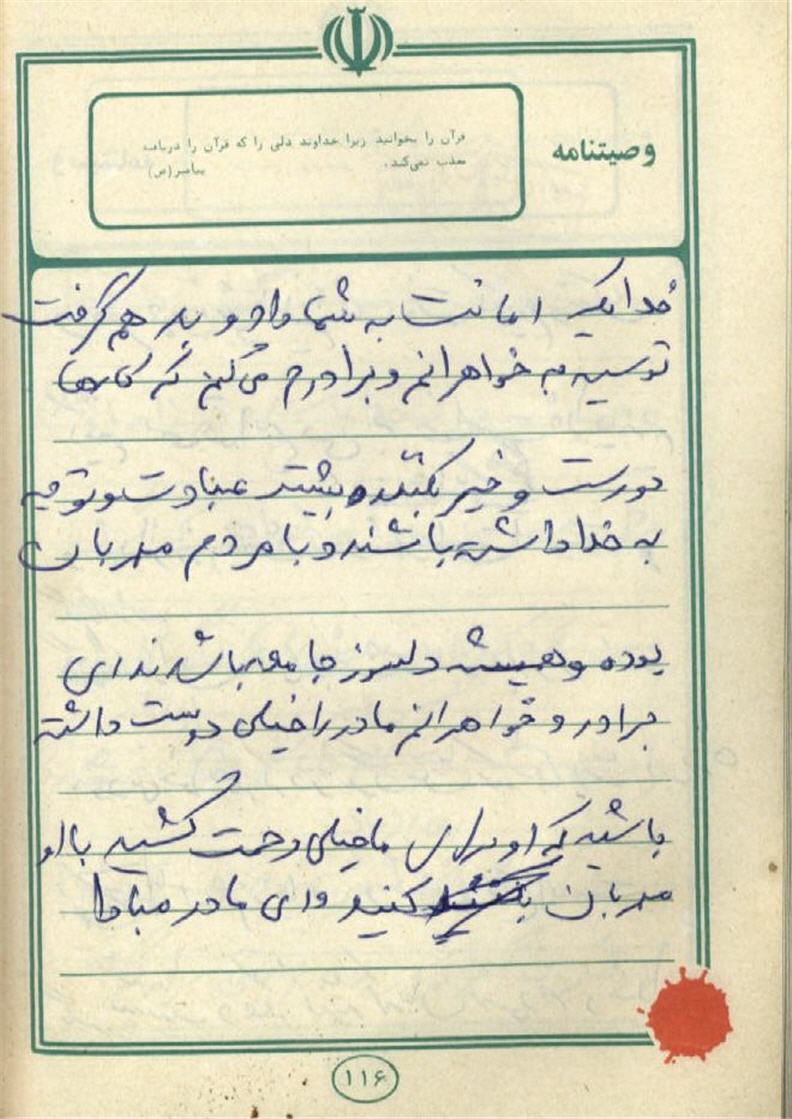 وصیتنامه
قرآن را بخوانید زیرا خداوند دلی را که قرآن را دریافت
معذب نمی‌کند.
پیامبر(ص)
خدا یک امانت به شما داد و پس هم گرفت
توسیه به خواهرانم و برادرم می کنم که کارها
دورست و خیر بکنند و بیشتر عبادت و توجه
به خدا داشته باشند و با مردم مهربان
بوده و همیشه دلسوز جامعه باشند ای
برادر و خواهرانم مادر را خیلی دوست داشته
باشید که او برای ما خیلی زحمت کشید با او
مهربان کنید وای مادر مبادا
۱۱۶